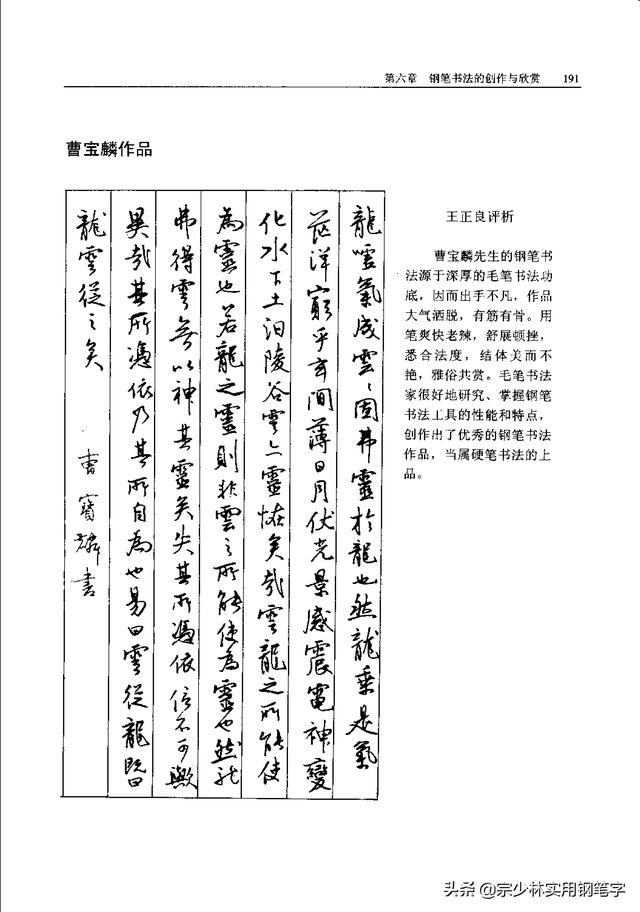 第六章 钢笔书法的创作与欣赏 191
曹宝麟作品
龍噓氣成雲〻固弗靈於龍也然龍乘是氣
茫洋窮乎玄間薄日月伏光景感震電神變
化水下土汩陵谷雲亦靈怪矣哉雲龍之所能使
為靈也若龍之靈則非雲之所能使為靈也然龍
弗得雲無以神其靈矣失其所憑依信不可歟
異哉其所憑依乃其所自為也易曰雲從龍既曰
龍雲從之矣
曹寶麟書
王正良评析
曹宝麟先生的钢笔书
法源于深厚的毛笔书法功
底，因而出手不凡，作品
大气洒脱，有筋有骨。用
笔爽快老辣，舒展顿挫，
悉合法度，结体美而不
艳，雅俗共赏。毛笔书法
家很好地研究、掌握钢笔
书法工具的性能和特点，
创作出了优秀的钢笔书法
作品，当属硬笔书法的上
品。
头条@宗少林实用钢笔字